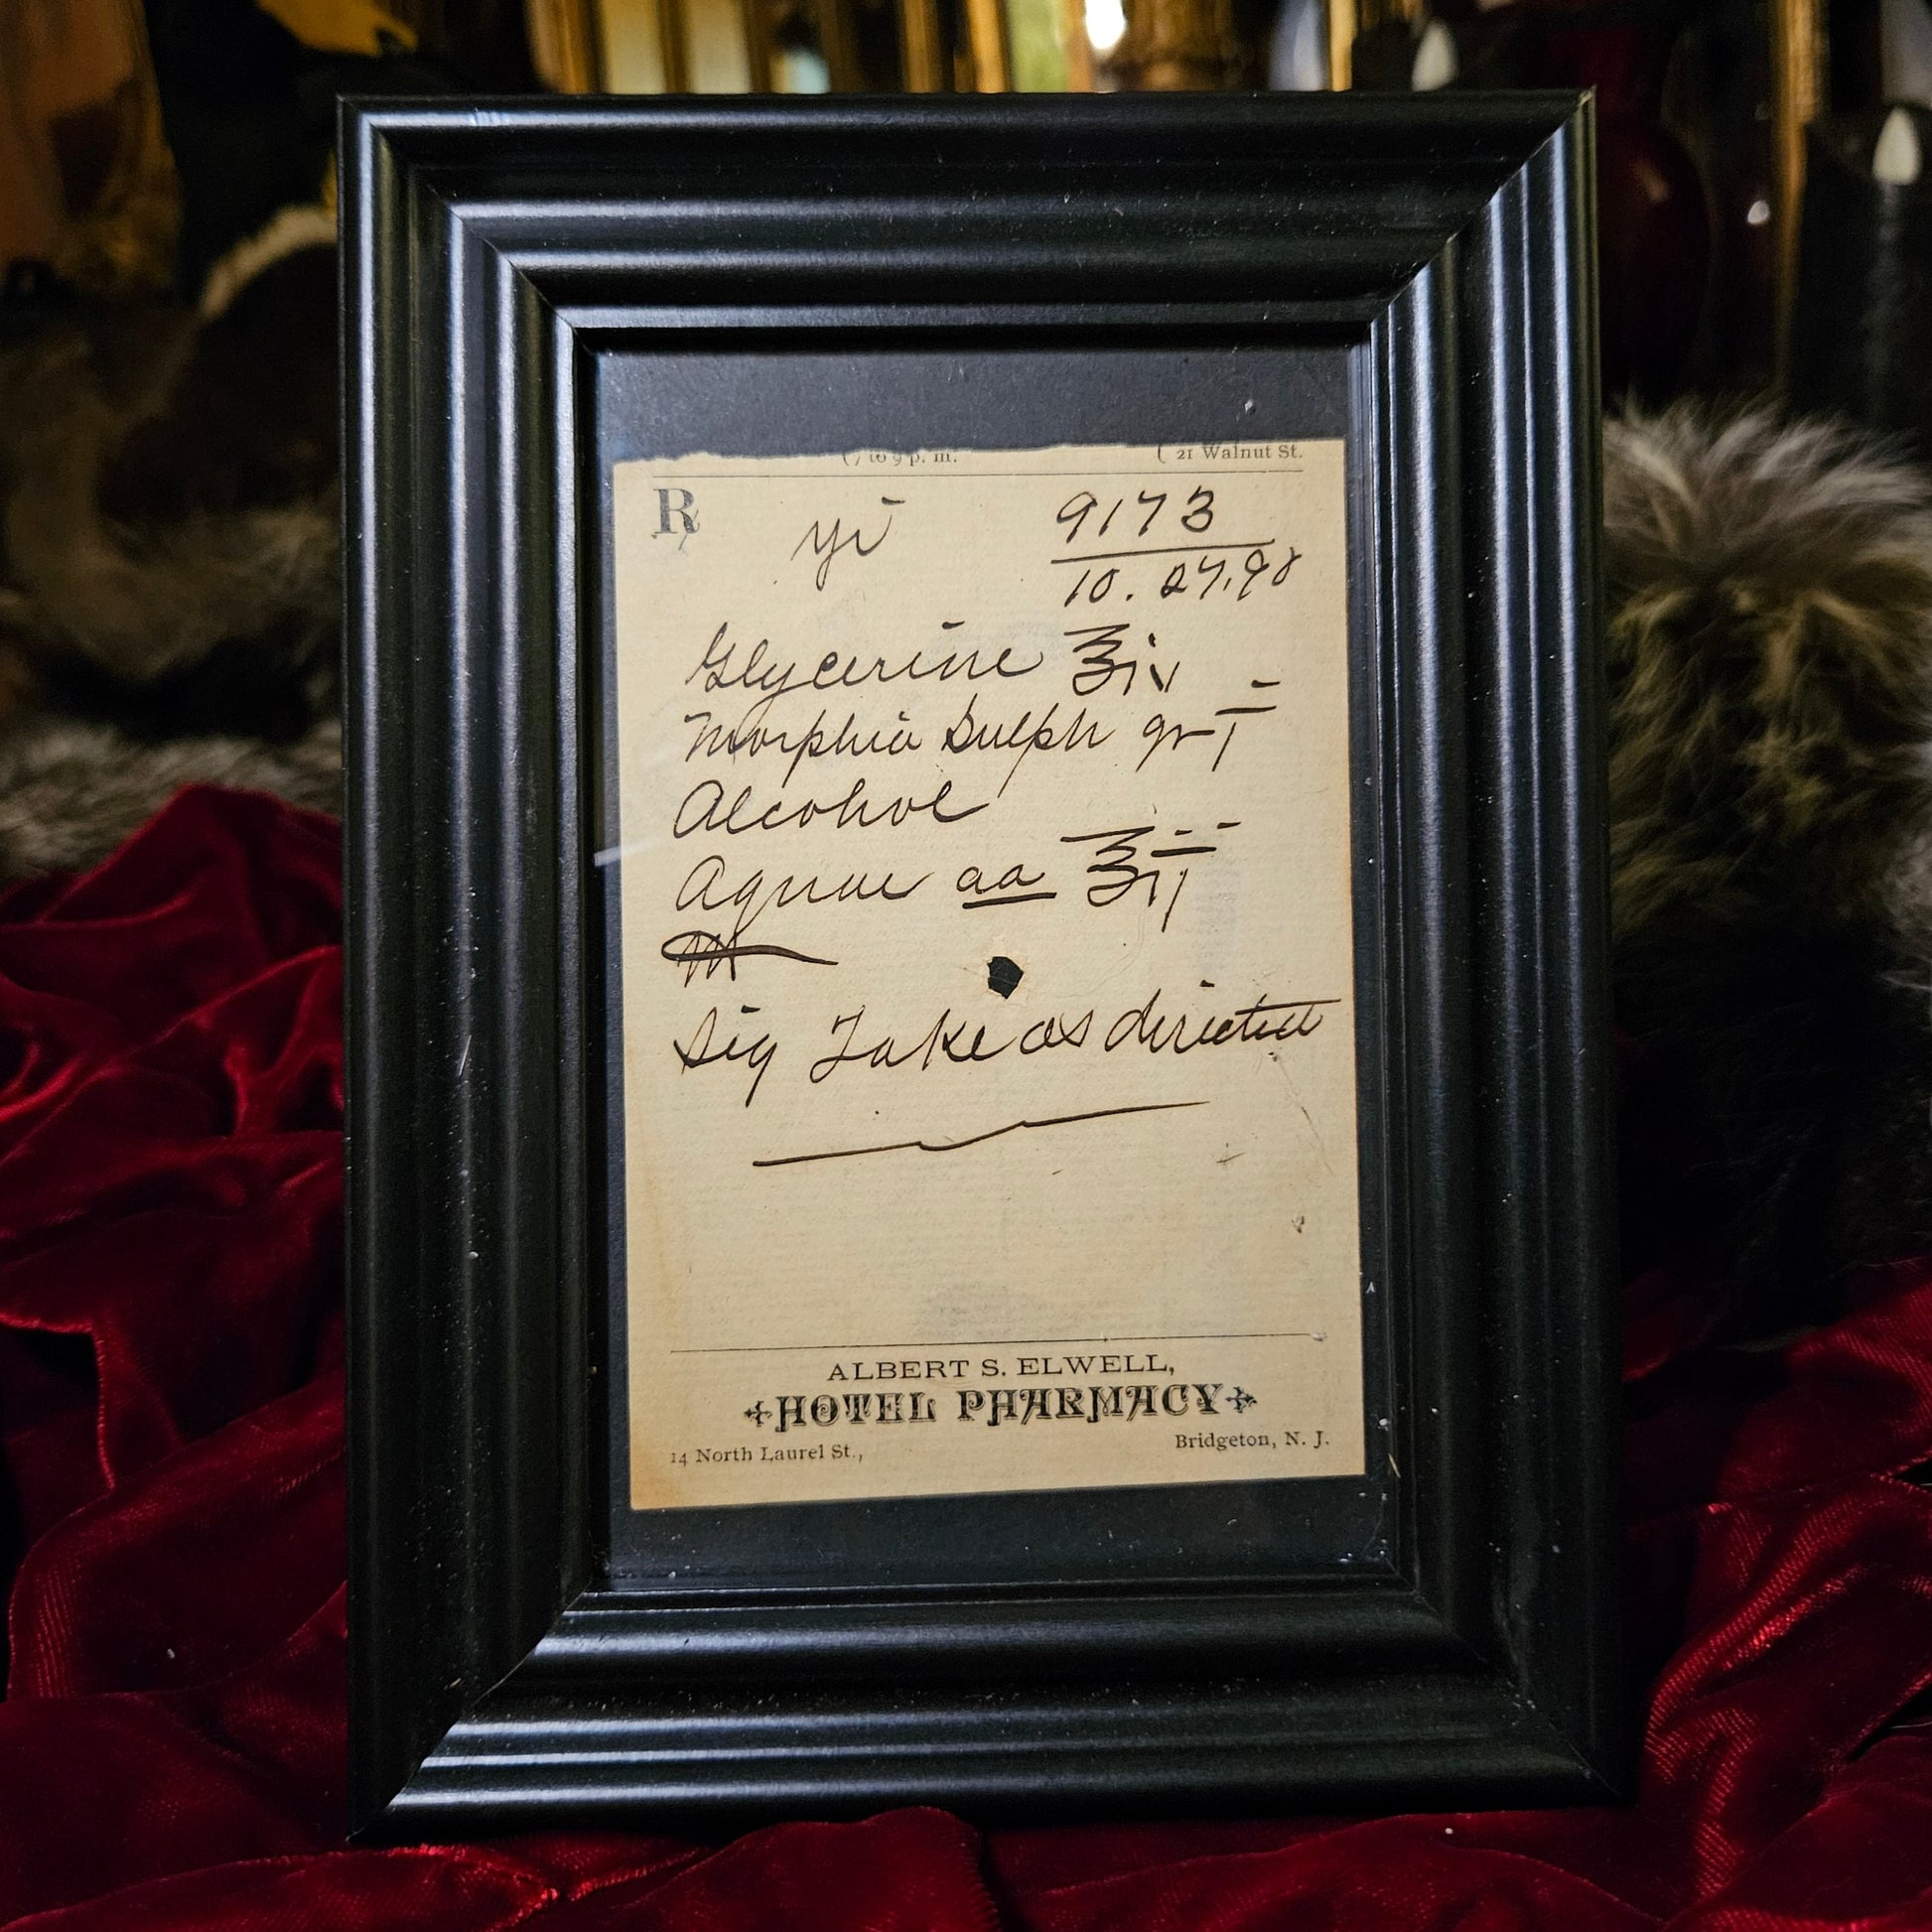 (7 to 9 p. m. ( 21 Walnut St.
℞ 9173
10. 27. 98
Glycerine ℥iv
Morphia Sulph gr i
Alcohol
Aquae aa ℥ij
M
Sig Take as directed
ALBERT S. ELWELL,
HOTEL PHARMACY
14 North Laurel St., Bridgeton, N. J.